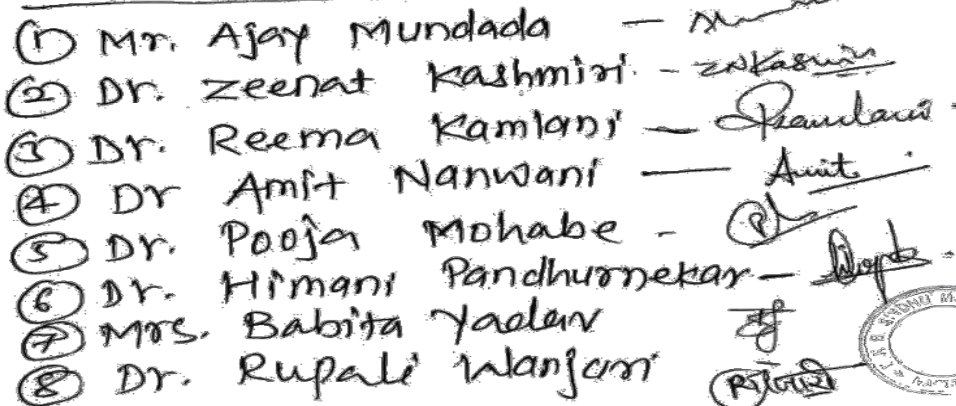 ① Mr. Ajay Mundada —
② Dr. Zeenat Kashmiri. - ZNKashmiri
③ Dr. Reema Kamlani —
④ Dr Amit Nanwani — Amit
⑤ Dr. Pooja Mohabe -
⑥ Dr. Himani Pandhurnekar —
⑦ Mrs. Babita Yadav
⑧ Dr. Rupali Wanjari